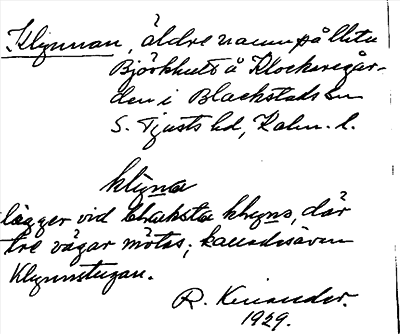 Klynnan, äldre namn på Utu
Björkhult å Klockaregår-
den i Blackstads sn
S. Tjusts hd, Kalm. l.
klyna
ligger vid blaksta klyno, där
tre vägar mötas; kallades även
Klynnstugan.
R. Kinander.
1929.